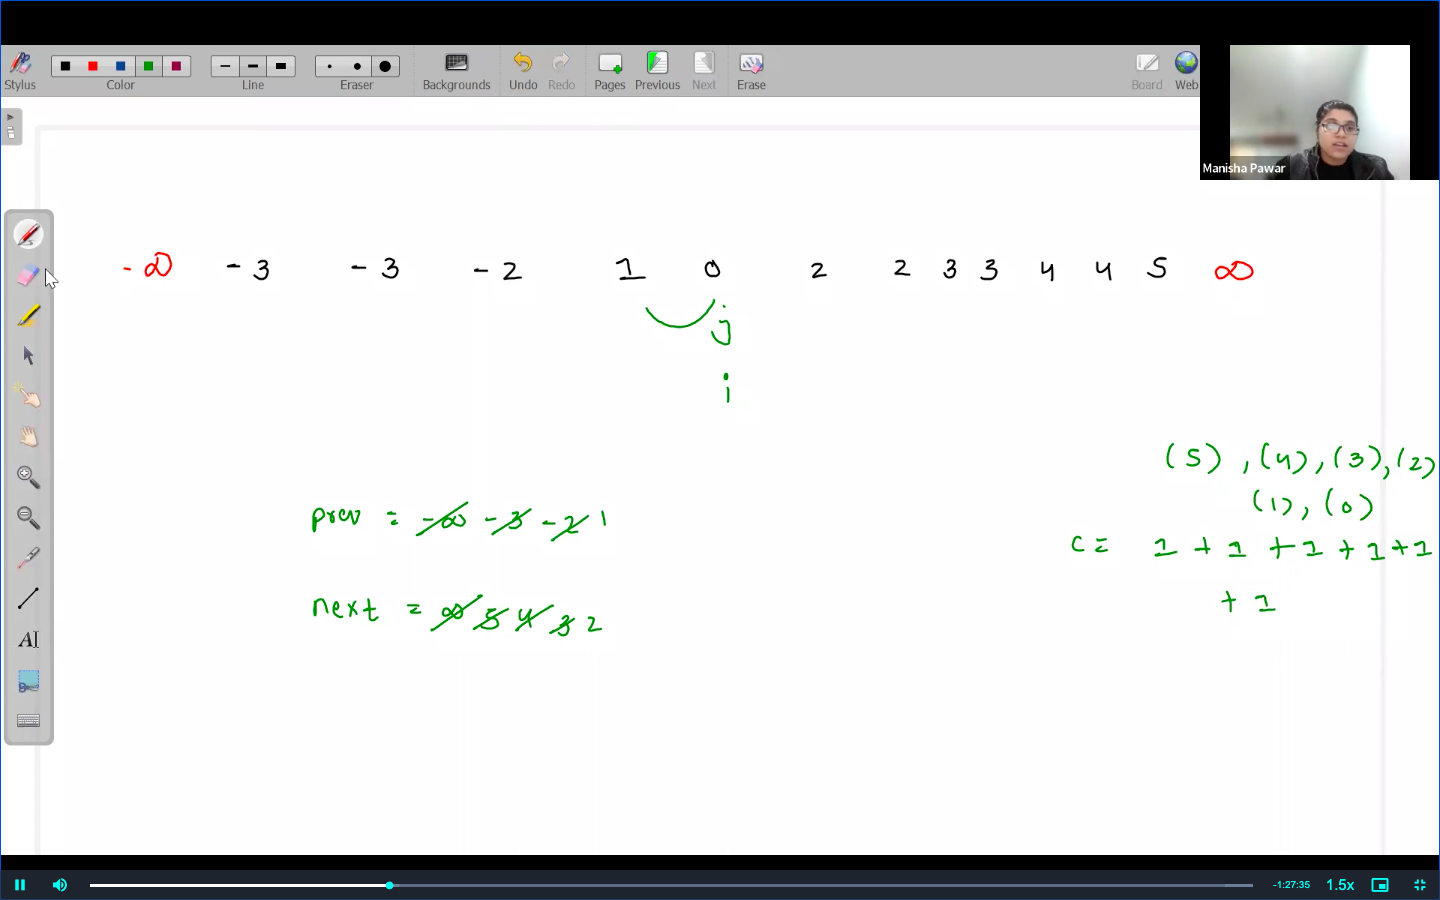 Stylus Color Line Eraser Backgrounds Undo Redo Pages Previous Next Erase Board Web
Manisha Pawar
- ∞ - 3 - 3 - 2 1 0 2 2 3 3 4 4 5 ∞
j
i
(5) , (4) , (3) , (2)
(1) , (0)
prev = -∞ -3 -2 1
c = 1 + 1 + 1 + 1 + 1
next = ∞ 5 4 3 2
+ 1
AI
-1:27:35 1.5x